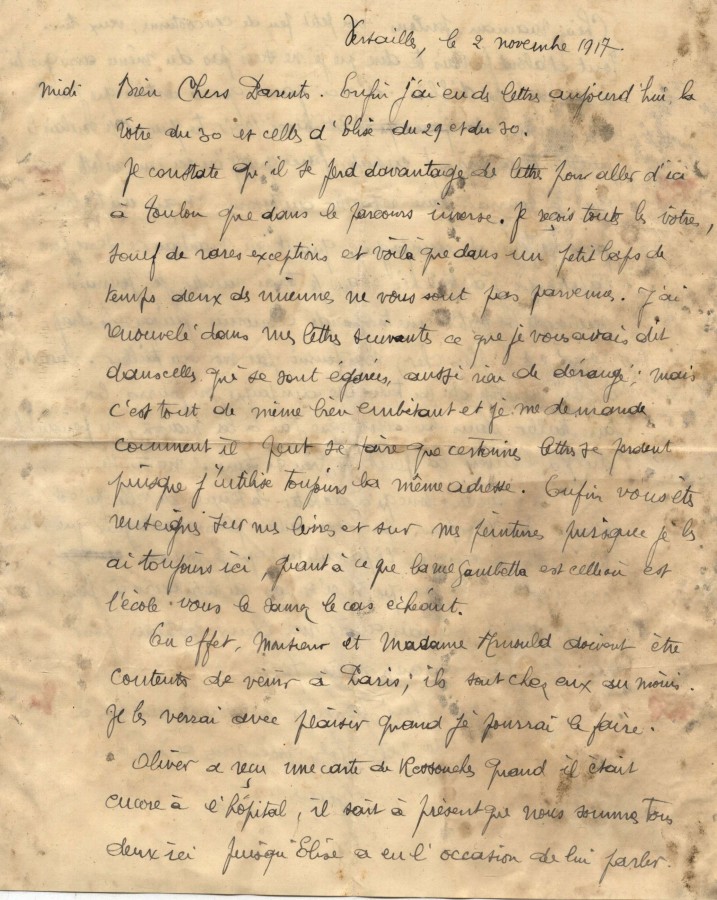 Versailles, le 2 novembre 1917.
midi Bien Chers Parents. Enfin j'ai eu des lettres aujourd'hui, la
vôtre du 30 et celles d'Elise du 29 et du 30.
Je constate qu'il se perd davantage de lettres pour aller d'ici
à Toulon que dans le parcours inverse. Je reçois toutes les vôtres,
sauf de rares exceptions et voilà que dans un petit laps de
temps deux des miennes ne vous sont pas parvenues. J'ai
renouvelé dans mes lettres suivantes ce que je vous avais dit
dans celles qui se sont égarées, aussi rien de dérangé; mais
c'est tout de même bien embêtant et je me demande
comment il peut se faire que certaines lettres se perdent
puisque j'utilise toujours la même adresse. Enfin vous êtes
renseignés sur mes livres et sur mes peintures puisque je les
ai toujours ici, quant à ce que la rue Gambetta est celle où est
l'école vous le saurez le cas échéant.
En effet, Monsieur et Madame Arnould doivent être
contents de venir à Paris; ils sont chez eux au moins.
Je les verrai avec plaisir quand je pourrai le faire.
Olivier a reçu une carte de Ressouches quand il était
encore à l'hôpital, il sait à présent que nous sommes tous
deux ici puisqu'Elise a eu l'occasion de lui parler.